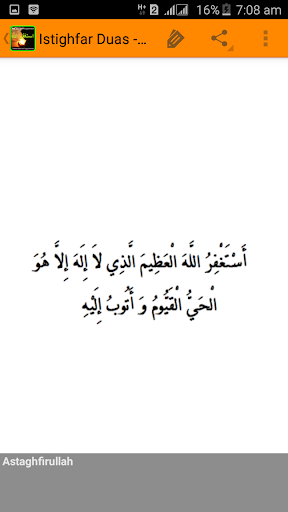 16% 7:08 am
Istighfar Duas -...
أَسْتَغْفِرُ اللَّهَ الْعَظِيمَ الَّذِي لاَ إِلَهَ إِلاَّ هُوَ
الْحَيُّ الْقَيُّومُ وَ أَتُوبُ إِلَيْهِ
Astaghfirullah